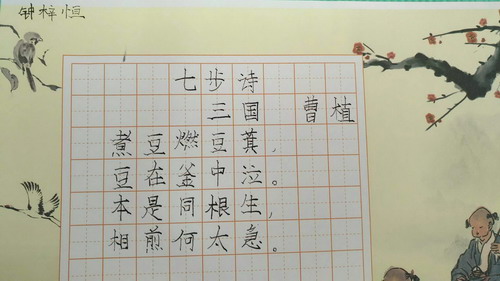 钟梓恒
七步诗
三国 曹植
煮豆燃豆萁,
豆在釜中泣。
本是同根生,
相煎何太急。